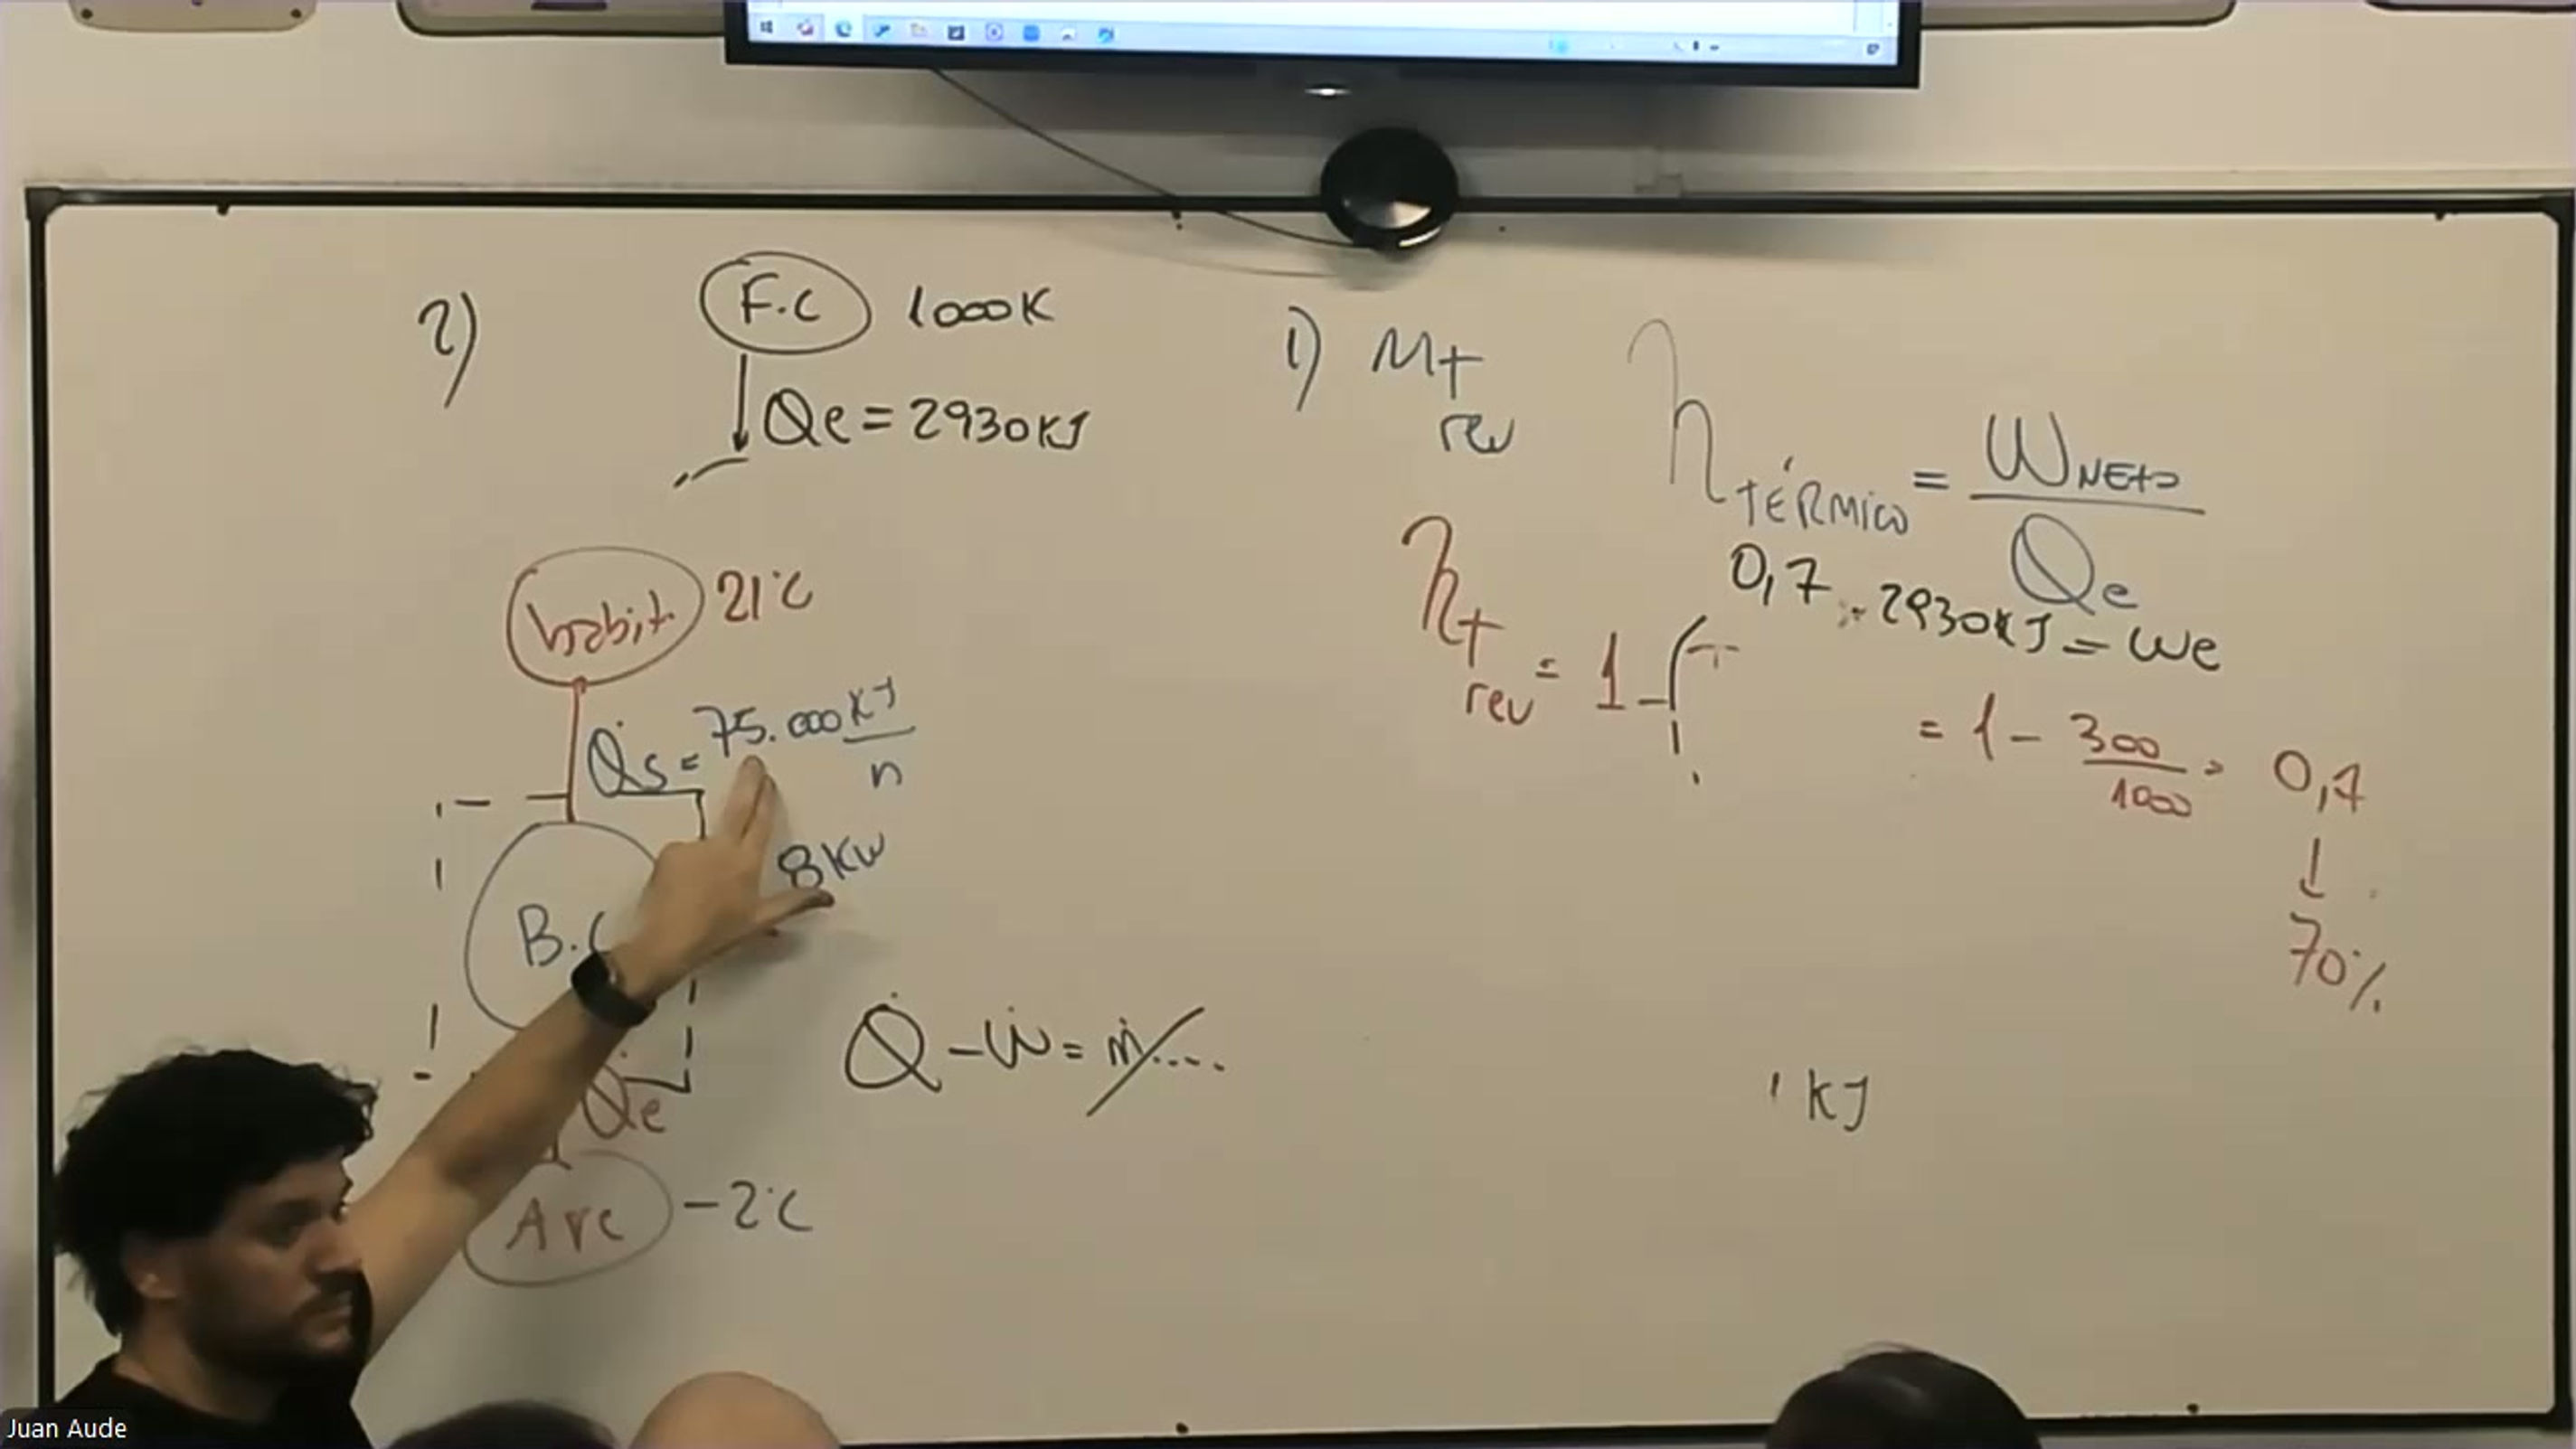 2)
F.C 1000K
Qe = 2930 KJ
habit. 21°C
Q̇s = 75.000 KJ/h
8 KW
B.C
Q̇e
Aire -2°C
Q̇ - Ẇ = ṁ....
1) MT rev
η TÉRMICO = W NETO / Qe
0,7 . 2930 KJ = We
ηT rev = 1 - T
= 1 - 300/1000 = 0,7
↓
70%
1 KJ
Juan Aude